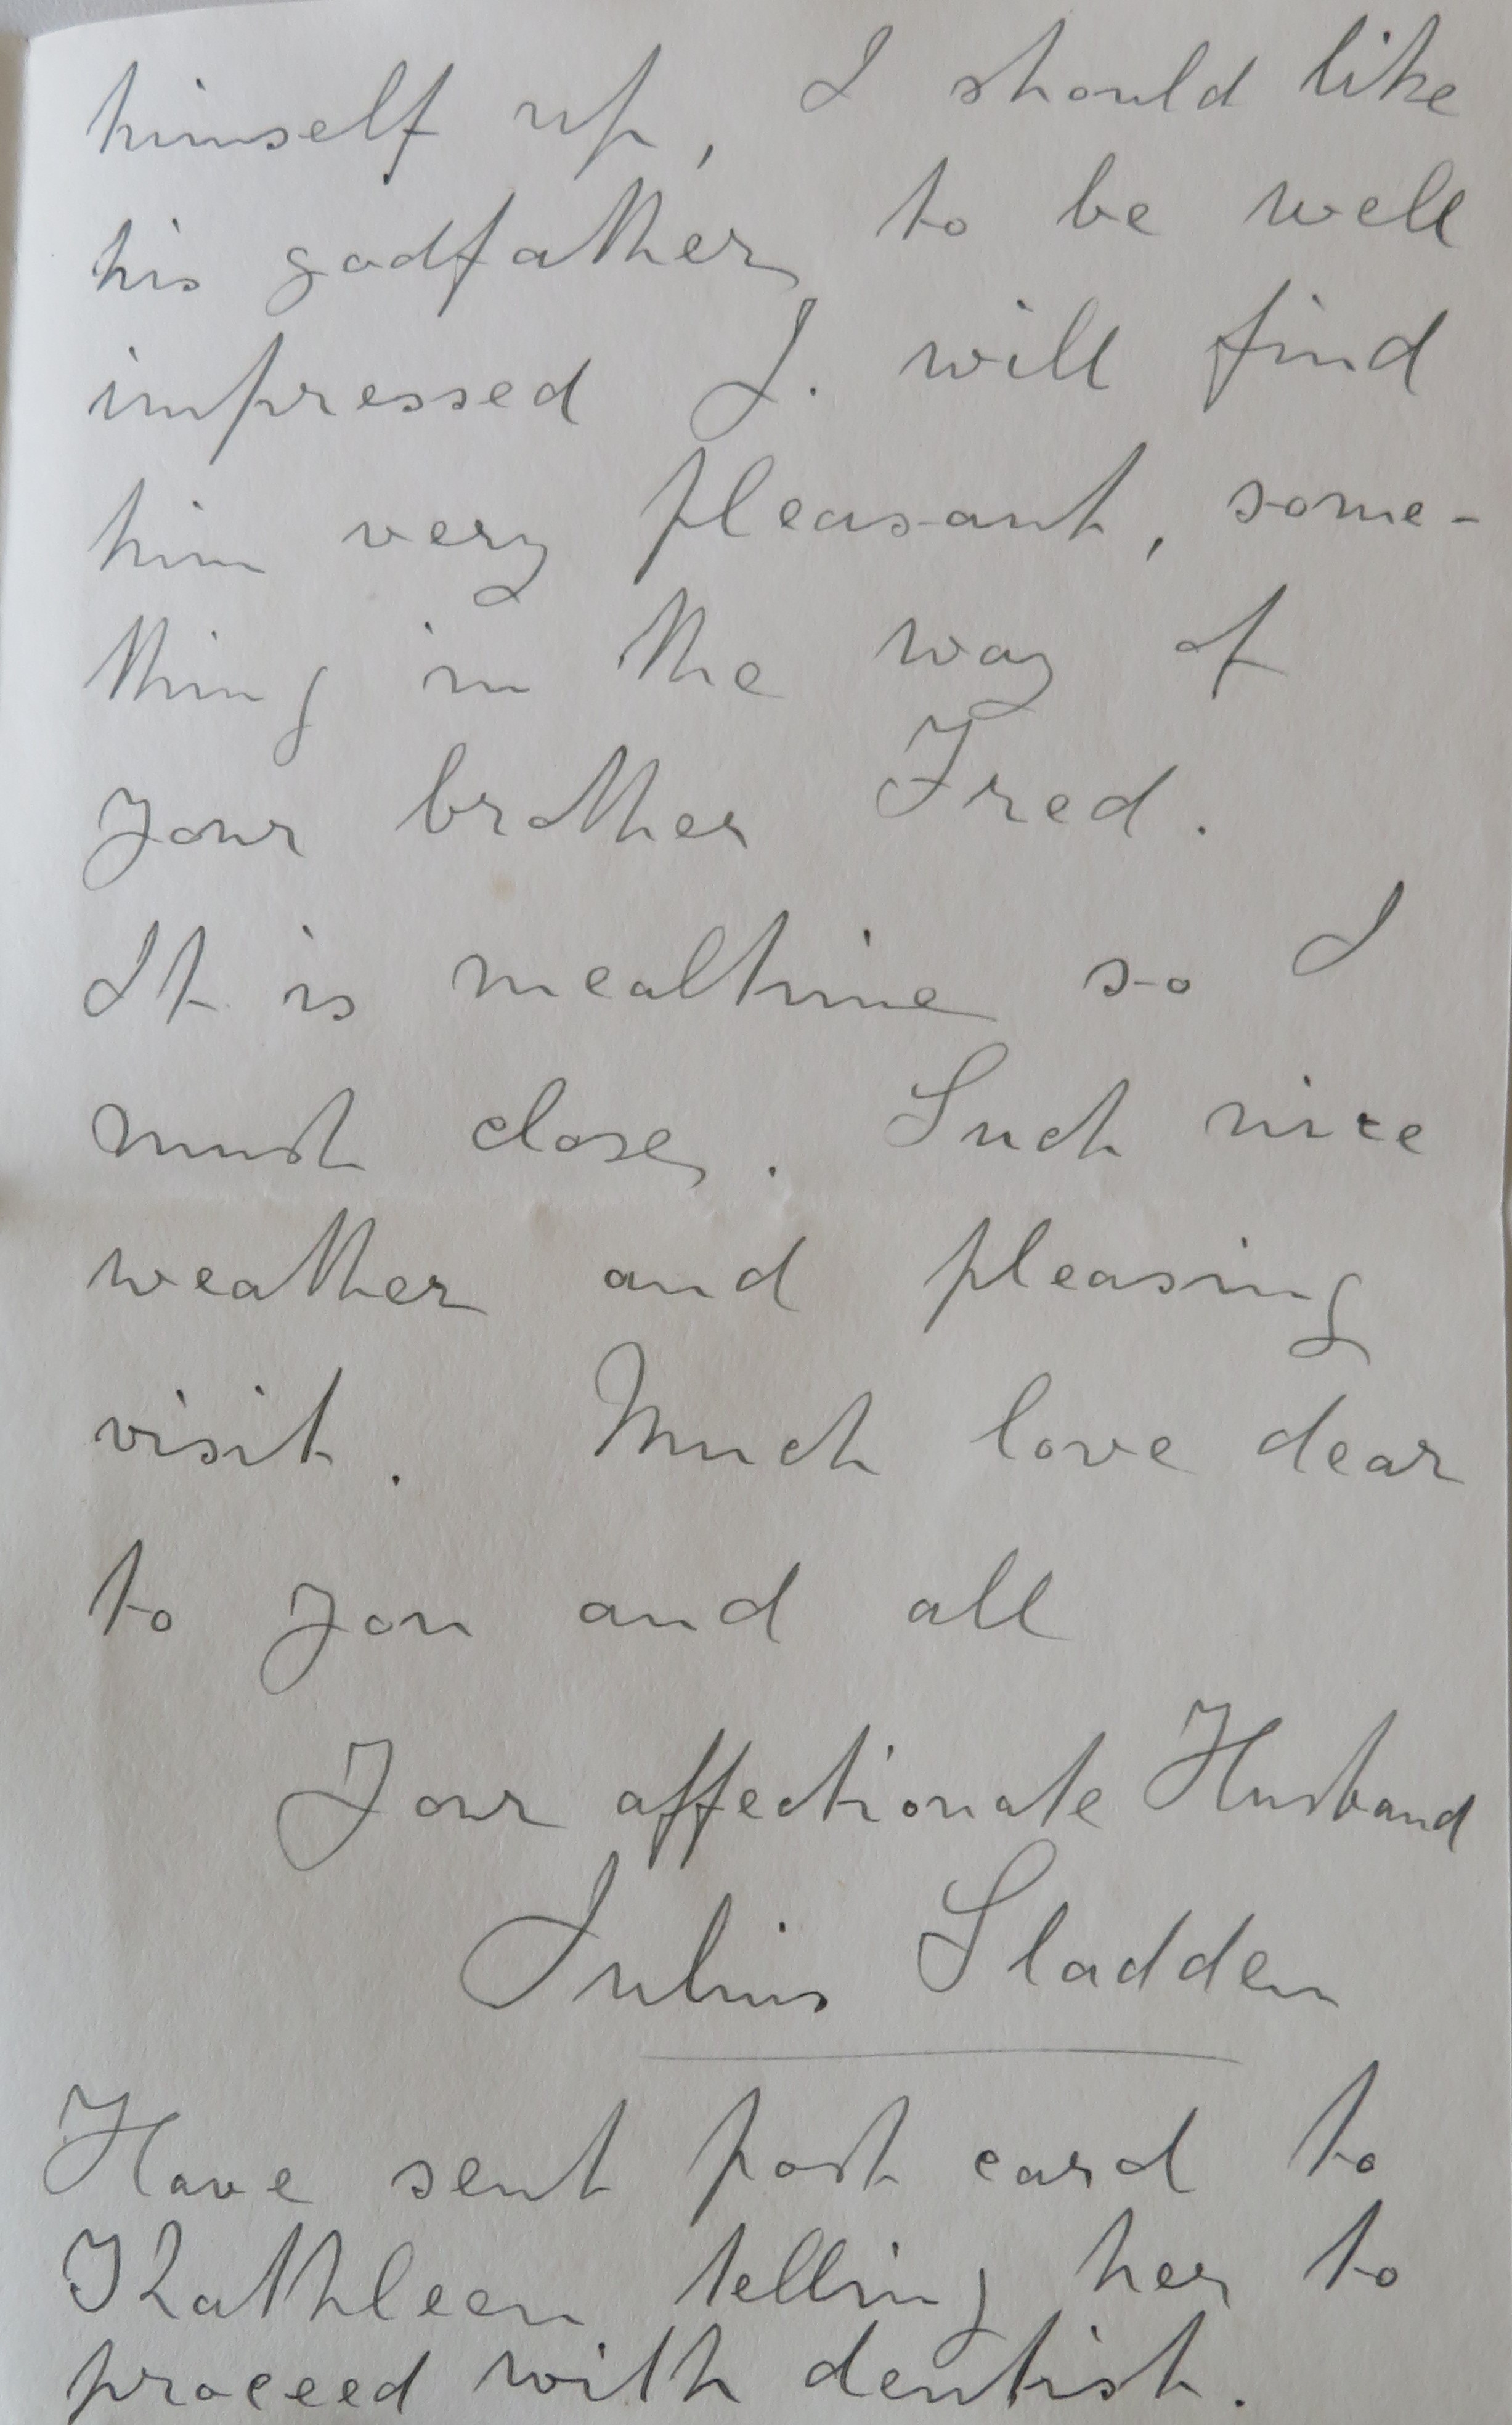 himself up, I should like
his godfather to be well
impressed J. will find
him very pleasant, some-
thing in the way of
your brother Fred.
It is mealtime so I
must close. Such nice
weather and pleasing
visit. Much love dear
to you and all
Your affectionate Husband
Julius Sladden
Have sent post card to
Kathleen telling her to
proceed with dentist.